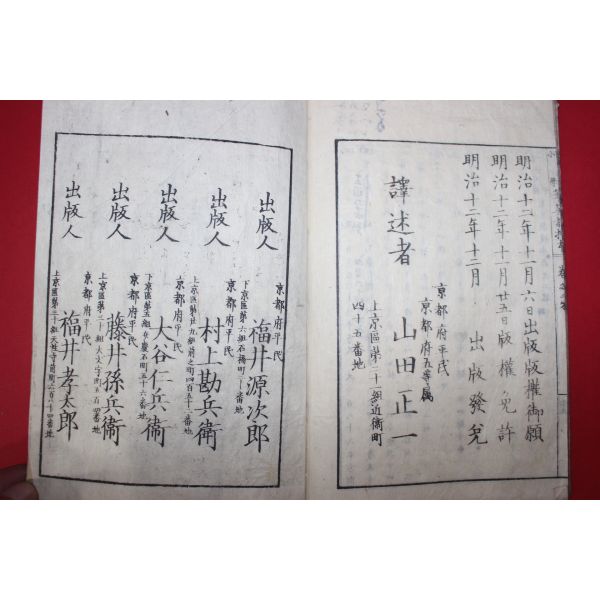 明治十二年十一月六日出版版權御願
明治十二年十一月廿五日版權免許
明治十二年十二月 出版發兌
京都府平民
京都府五等屬
譯述者 山田正一
上京區第二十一組近衞町
四十五番地
京都府平民
出版人 福井源次郎
下京區第六組石橋町
京都府平民
出版人 村上勘兵衞
上京區第廿九組 四百五十一番地
京都府平民
出版人 大谷仁兵衞
下京區第五組 石町五十六番地
京都府平民
出版人 藤井孫兵衞
上京區第三十組大文字町 番地
京都府平民
出版人 福井孝太郎
上京區第三十組天性寺前町六百八十四番地